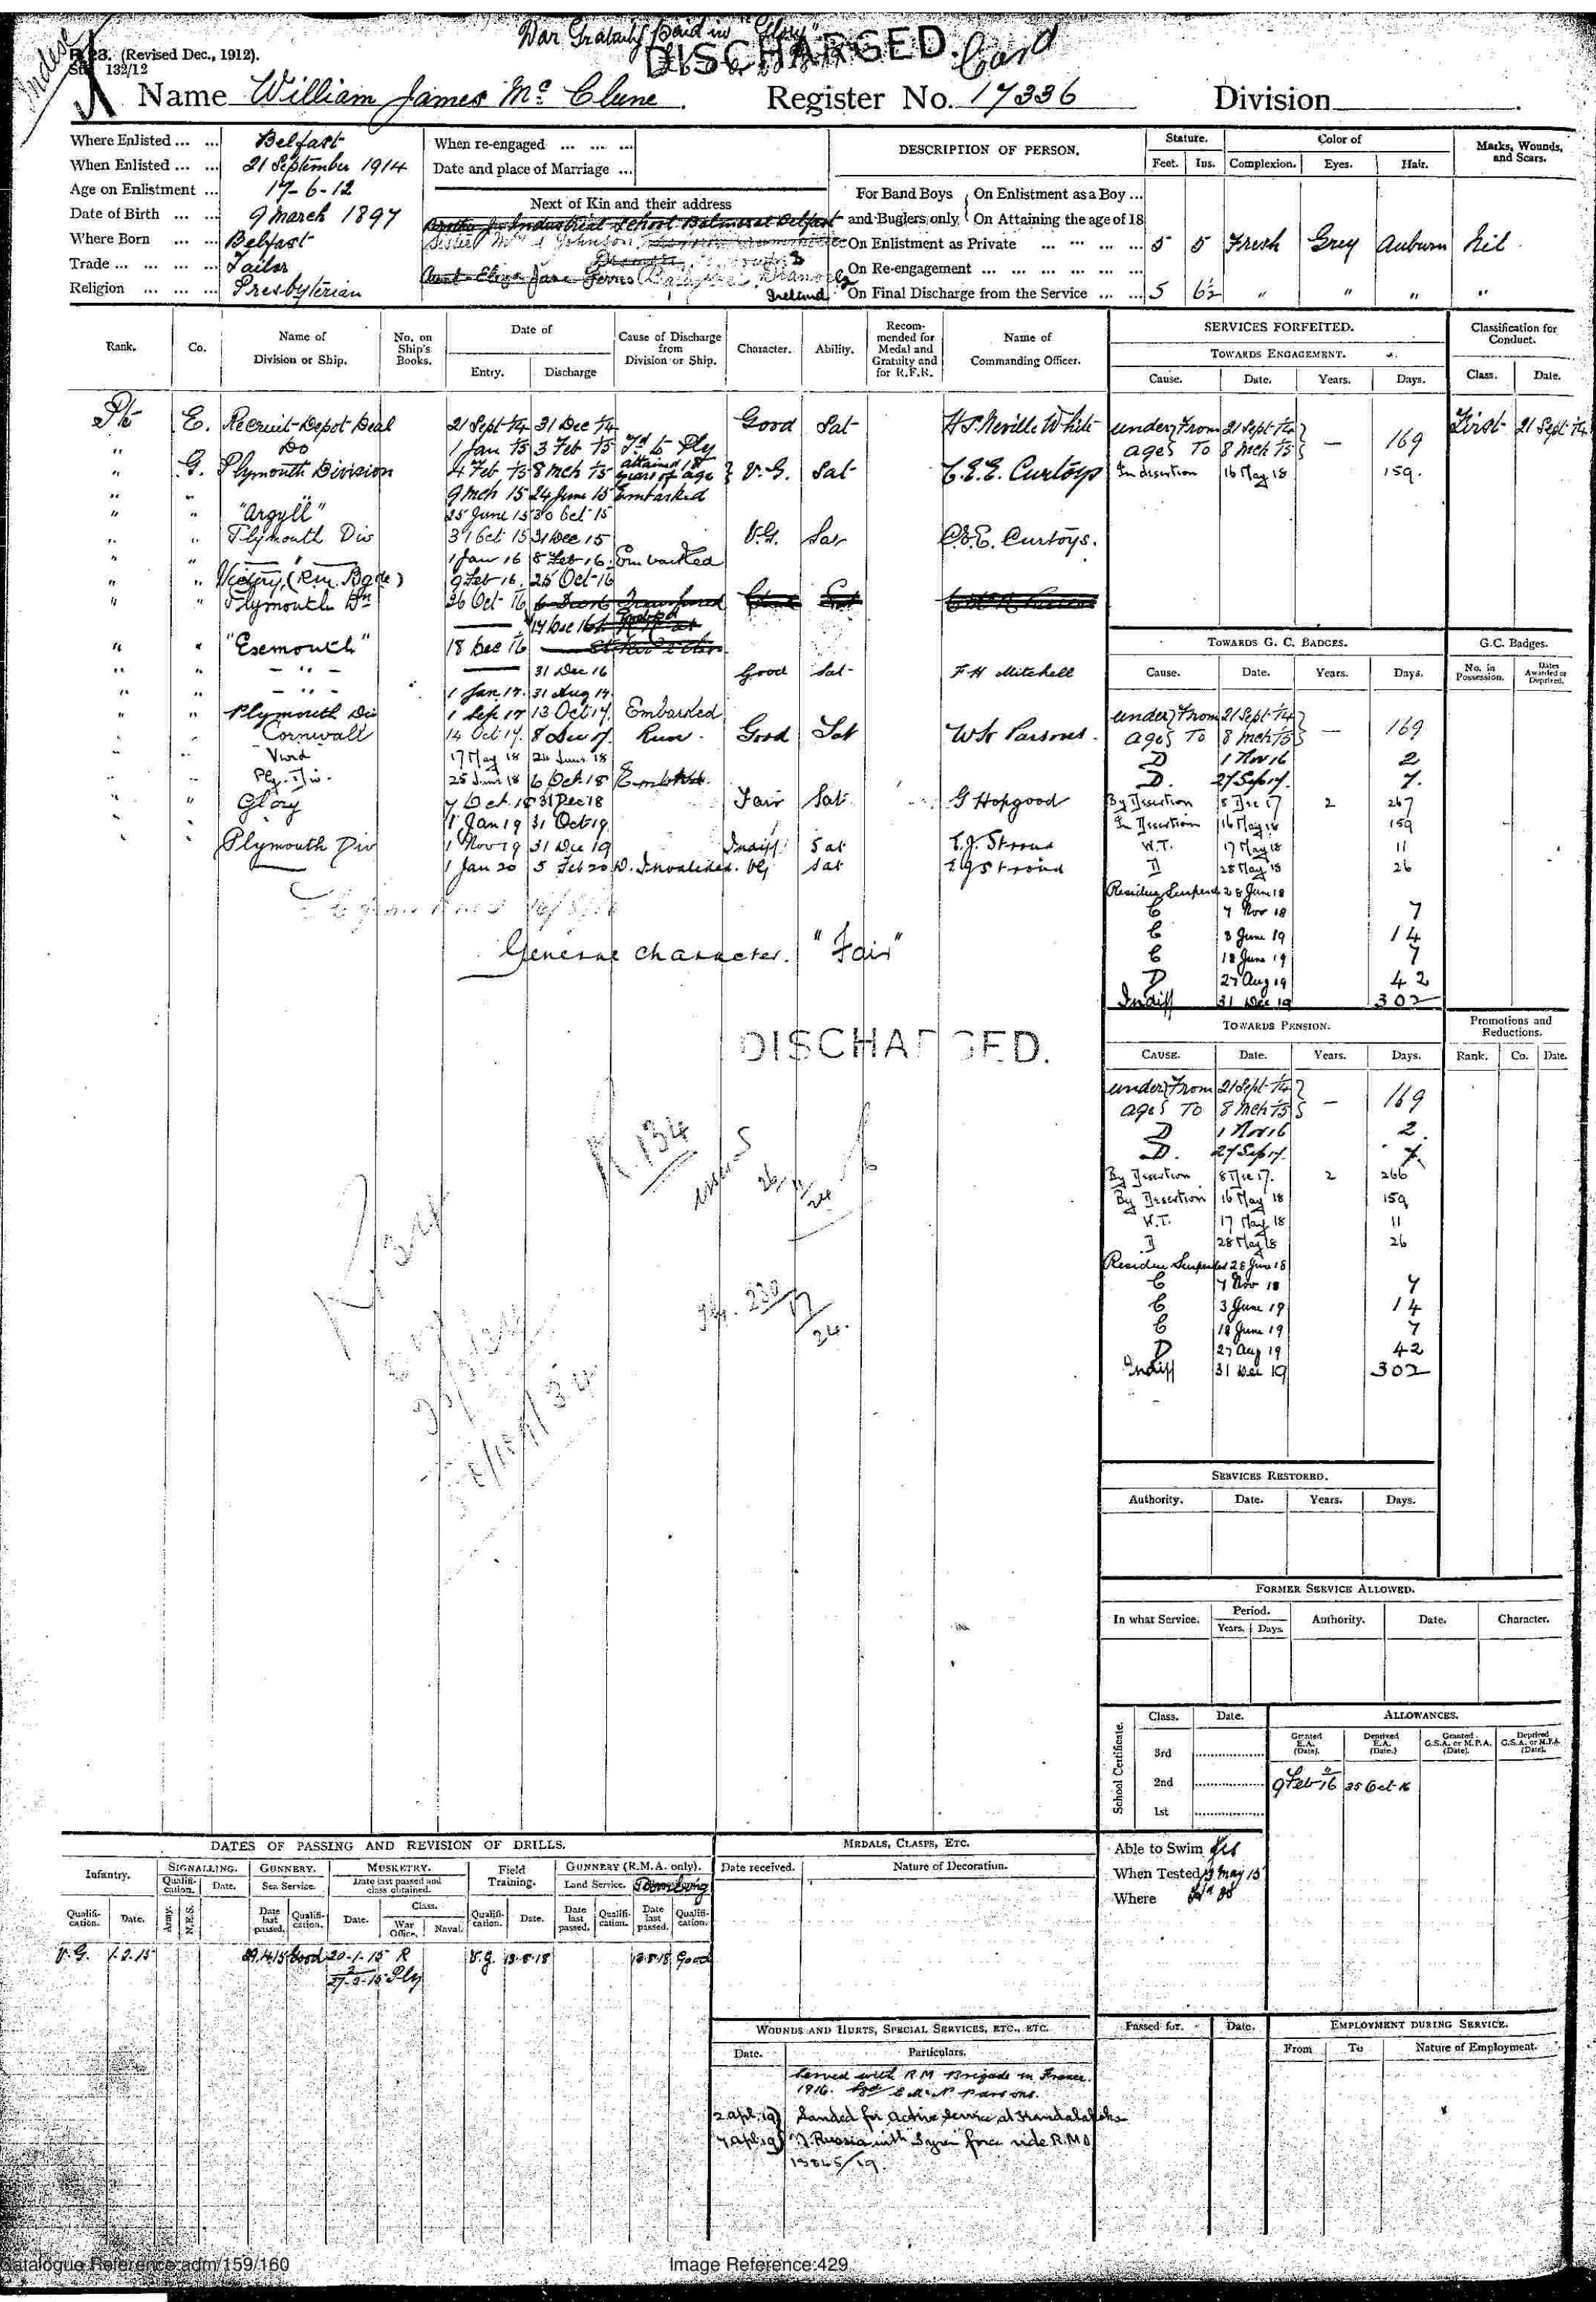 War Gratuity paid in "Glory"
DISCHARGED.
Card
Indexed
R. 123. (Revised Dec., 1912).
Sta. 132/12
Name William James Mc Clune. Register No. 17336 Division
Where Enlisted ... ... Belfast
When Enlisted ... ... 21 September 1914
Age on Enlistment ... 17-6-12
Date of Birth ... ... 9 March 1897
Where Born ... ... Belfast
Trade ... ... ... ... Tailor
Religion ... ... ... Presbyterian
When re-engaged ... ... ...
Date and place of Marriage ...
Next of Kin and their address
Industrial School Balmoral Belfast
Johnson
Aunt Eliza Jane Ferris
Ireland
DESCRIPTION OF PERSON.
Stature. Color of Marks, Wounds, and Scars.
Feet. Ins. Complexion. Eyes. Hair.
For Band Boys and Buglers only. On Enlistment as a Boy ...
On Attaining the age of 18
On Enlistment as Private ... ... ... ... 5 5 Fresh Grey Auburn Nil
On Re-engagement ... ... ... ... ... ...
On Final Discharge from the Service ... ... 5 6½ " " " "
Rank. Co. Name of Division or Ship. No. on Ship's Books. Date of Entry. Discharge Cause of Discharge from Division or Ship. Character. Ability. Recommended for Medal and Gratuity and for R.F.R. Name of Commanding Officer.
Pte E. Recruit Depot Deal 21 Sept 14 31 Dec 14 Good Sat H. S. Neville White
" Do 1 Jan 15 3 Feb 15 Td to Ply
" G. Plymouth Division 4 Feb 15 8 Mch 15 attained 18 years of age V.G. Sat C.E.E. Curtoys
" " 9 Mch 15 24 June 15 Embarked
" " "Argyll" 25 June 15 30 Oct 15
" " Plymouth Div 31 Oct 15 31 Dec 15 V.G. Sat C.E.E. Curtoys.
" " 1 Jan 16 8 Feb 16 Embarked
" " Victory (R.M. Bgde) 9 Feb 16 25 Oct 16
" " Plymouth Dn 26 Oct 16
17 Dec 16
" " "Exmouth" 18 Dec 16
" " - " - 31 Dec 16 Good Sat F H Mitchell
" " - " - 1 Jan 17. 31 Aug 17.
" " Plymouth Div 1 Sep 17 13 Oct 17. Embarked
" " Cornwall 14 Oct 17. 8 Dec 17. Run. Good Sat W Parsons.
Vivid 17 May 18 24 June 18
" " Ply. Div. 25 June 18 6 Oct 18 Embked.
" " Glory 7 Oct 18 31 Dec 18 Fair Sat G Hopgood
1 Jan 19 31 Oct 19
" " Plymouth Div 1 Nov 19 31 Dec 19 Indiff Sat E.J. Stroud
1 Jan 20 5 Feb 20 D. Invalided. VG Sat E J Stroud
General Character. "Fair"
DISCHARGED.
R. 134
26/11/24
SERVICES FORFEITED.
TOWARDS ENGAGEMENT.
Cause. Date. Years. Days.
under age From 21 Sept 14 To 8 Mch 15 — 169
In desertion 16 May 18 159.
Classification for Conduct.
Class. Date.
First 21 Sept 14
TOWARDS G. C. BADGES.
Cause. Date. Years. Days.
under age From 21 Sept 14 To 8 Mch 15 — 169
D 1 Nov 16 2
D. 27 Sep 17. 7.
By Desertion 8 Dec 17 2 267
In Desertion 16 May 18 159
W.T. 17 May 18 11
D 28 May 18 26
Residue Suspended 28 June 18
C 7 Nov 18 7
C 3 June 19 14
C 18 June 19 7
D 27 Aug 19 42
Indiff 31 Dec 19 302
G.C. Badges.
No. in Possession. Dates Awarded or Deprived.
TOWARDS PENSION.
CAUSE. Date. Years. Days.
under age From 21 Sept 14 To 8 Mch 15 — 169
D 1 Nov 16 2.
D. 27 Sep 17. 7
By Desertion 8 Dec 17. 2 266
By Desertion 16 May 18 159
W.T. 17 May 18 11
D 28 May 18 26
Residue Suspended 28 June 18
C 7 Nov 18 7
C 3 June 19 14
C 18 June 19 7
D 27 Aug 19 42
Indiff 31 Dec 19 302
Promotions and Reductions.
Rank. Co. Date.
SERVICES RESTORED.
Authority. Date. Years. Days.
FORMER SERVICE ALLOWED.
In what Service. Period. Years. Days. Authority. Date. Character.
School Certificate. Class. Date.
3rd
2nd
1st
ALLOWANCES.
Granted E.A. (Date). Deprived E.A. (Date.) Granted G.S.A. or M.P.A. (Date). Deprived G.S.A. or M.P.A. (Date).
9 Feb 16 25 Oct 16
Able to Swim Yes
When Tested 19 May 15
Where
DATES OF PASSING AND REVISION OF DRILLS.
Infantry. SIGNALLING. GUNNERY. MUSKETRY. Field Training. GUNNERY (R.M.A. only).
Sea Service. Date last passed and class obtained. Land Service.
Qualification. Date. Army. N.E.S. Date last passed. Qualification. Date. Class. War Office. Naval. Qualification. Date. Date last passed. Qualification. Date last passed. Qualification.
V.G. 1.2.15 Good 20-1-15 R V.g. 13.8.18 13.8.18 Good
Ply
MEDALS, CLASPS, ETC.
Date received. Nature of Decoration.
WOUNDS AND HURTS, SPECIAL SERVICES, ETC., ETC.
Date. Particulars.
Served with R M Brigade in France.
1916.
2 Apl 19 Landed for active service at Kandalaksha
7 Apl 19 N. Russia with Syren force vide R.M.O
Passed for. Date.
EMPLOYMENT DURING SERVICE.
From To Nature of Employment.
Catalogue Reference:adm/159/160
Image Reference:429